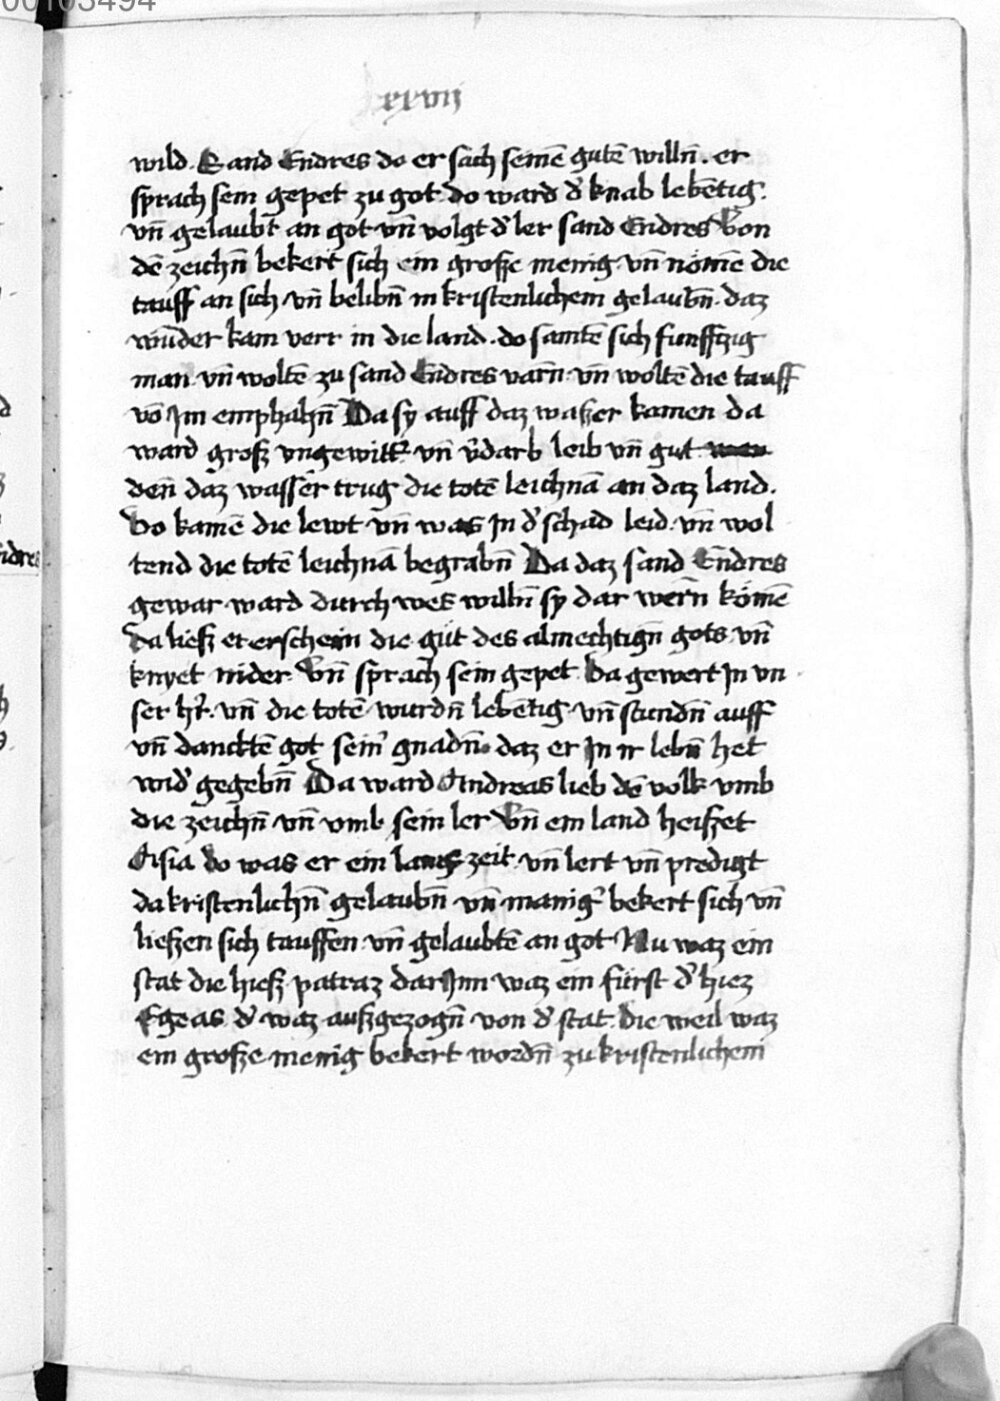 00103494
xxvij
wild. Sand Endres do er sach seinē gutē willn̄. er
sprach sein gepet zu got. do ward d͛ knab lebētig.
vn̄ gelaubt an got vn̄ volgt d͛ ler sand Endres Von
dē zeichn̄ bekert sich ein große menig vn̄ nömē die
tauff an sich vn̄ belibn̄ in kristenlichem gelaubn̄. daz
wūder kam verr in die land. do samtē sich funffzig
man. vn̄ woltē zu sand Endres varn̄ vn̄ woltē die tauff
vō Im emphahn̄ Da sy auff daz waßer kamen da
ward groß vngewitt͛ vn̄ v͛darb leib vn̄ gut
den̄ daz wasser trug die totē leichnā an daz land.
Do kamē die lewt vn̄ was In d͛ schad leid. vn̄ wol
tend die totē leichnā begrabn̄ Da daz sand Endres
gewar ward durch wes willn̄ sy dar wern̄ kömē
Da ließ er erschein die güt des almechtign̄ gots vn̄
knyet nider. Vn̄ sprach sein gepet. Da gewert In vn
ser hr͛. vn̄ die totē wurdn̄ lebētig vn̄ stundn̄ auff
vn̄ dancktē got sein͛ gnadn̄. daz er In ir lebn̄ het
wid͛ gegebn̄ Da ward Andreas lieb dē volk vmb
die zeichn̄ vn̄ vmb sein ler Vn̄ ein land heißet
Asia do was er ein lang zeit vn̄ lert vn̄ predigt
da kristenlichn̄ gelaubn̄ vn̄ manig͛ bekert sich vn̄
ließen sich tauffen vn̄ gelaubtē an got Nu waz ein
stat die hieß patraz dar Inn waz ein fürst d͛ hiez
Egeas d͛ waz außgezogn̄ von d͛ stat. Die weil waz
ein große menig bekert wordn̄ zu kristenlichem